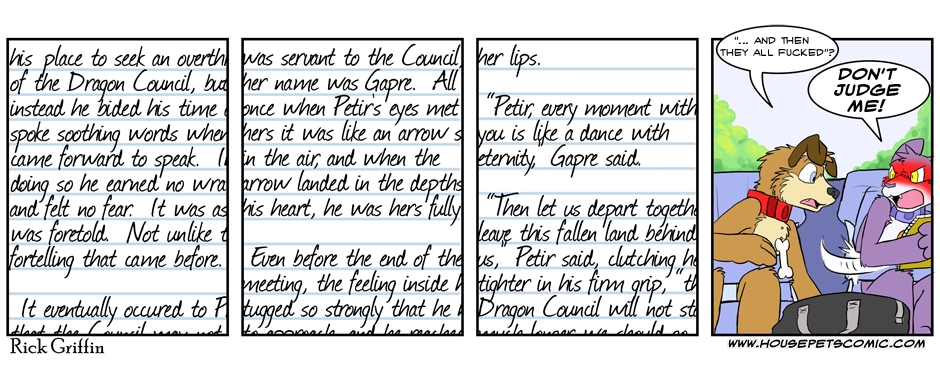 his place to seek an overth
of the Dragon Council, but
instead he bided his time
spoke soothing words when
came forward to speak. I
doing so he earned no wra
and felt no fear. It was as
was foretold. Not unlike t
fortelling that came before.
It eventually occured to P
that the Council may not
was servant to the Council,
her name was Gapre. All
once when Petir's eyes met
hers it was like an arrow s
in the air, and when the
arrow landed in the depths
his heart, he was hers fully
Even before the end of the
meeting, the feeling inside h
tugged so strongly that he h
to approach, and he reached
her lips.
"Petir, every moment with
you is like a dance with
eternity, Gapre said.
"Then let us depart togethe
leave this fallen land behind
us, Petir said, clutching he
tighter in his firm grip, "th
Dragon Council will not sta
much longer we should go
"... AND THEN
THEY ALL FUCKED"?
DON'T
JUDGE
ME!
Rick Griffin
WWW.HOUSEPETSCOMIC.COM